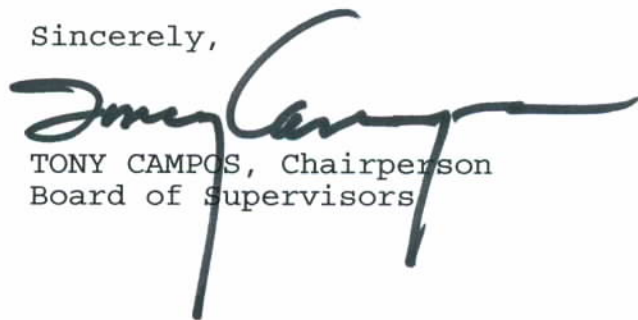 Sincerely,
Tony Campos
TONY CAMPOS, Chairperson
Board of Supervisors